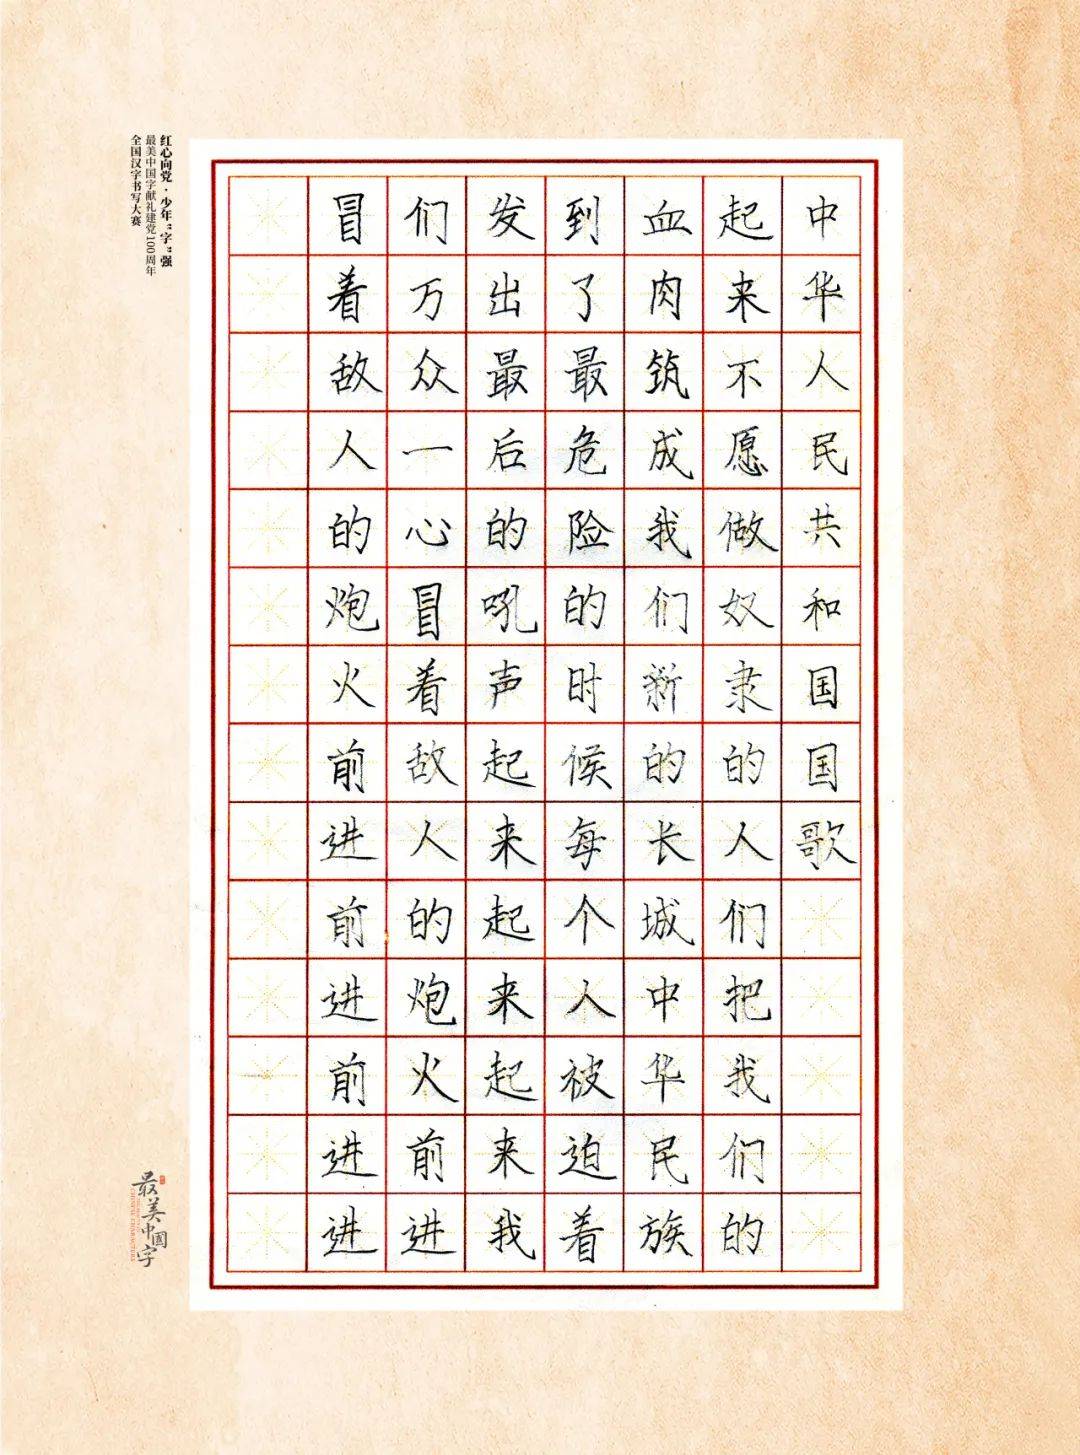 中华人民共和国国歌
起来不愿做奴隶的人们把我们的
血肉筑成我们新的长城中华民族
到了最危险的时候每个人被迫着
发出最后的吼声起来起来起来我
们万众一心冒着敌人的炮火前进
冒着敌人的炮火前进前进前进进
红心向党·少年“字”强
最美中国字献礼建党100周年
全国汉字书写大赛
最美中國字